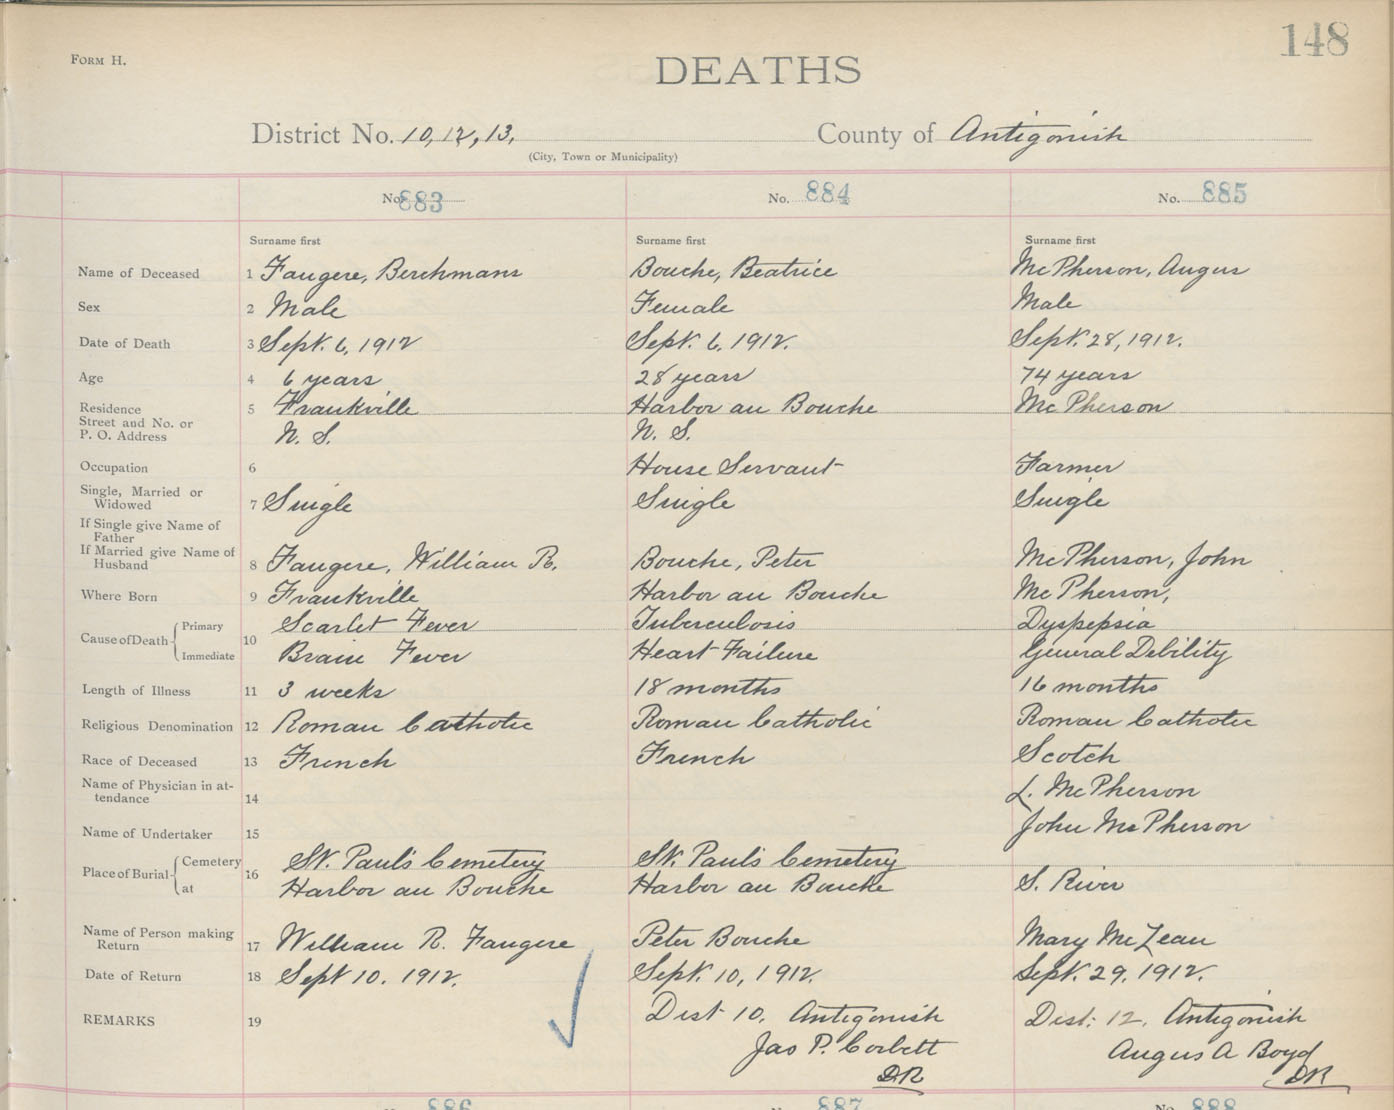 148
FORM H.
DEATHS
District No. 10, 12, 13, County of Antigonish
(City, Town or Municipality)
No. 883 No. 884 No. 885
Surname first Surname first Surname first
Name of Deceased 1 Faugere, Berchmans Bouche, Beatrice McPherson, Angus
Sex 2 Male Female Male
Date of Death 3 Sept. 6, 1912 Sept. 6, 1912. Sept. 28, 1912.
Age 4 6 years 28 years 74 years
Residence 5 Frankville Harbor au Bouche McPherson
Street and No. or
P. O. Address N. S. N. S.
Occupation 6 House Servant Farmer
Single, Married or
Widowed 7 Single Single Single
If Single give Name of
Father
If Married give Name of
Husband 8 Faugere, William R. Bouche, Peter McPherson, John
Where Born 9 Frankville Harbor au Bouche McPherson,
Cause of Death Primary 10 Scarlet Fever Tuberculosis Dyspepsia
Immediate Brain Fever Heart Failure General Debility
Length of Illness 11 3 weeks 18 months 16 months
Religious Denomination 12 Roman Catholic Roman Catholic Roman Catholic
Race of Deceased 13 French French Scotch
Name of Physician in at-
tendance 14 L. McPherson
Name of Undertaker 15 John McPherson
Place of Burial Cemetery 16 St. Paul's Cemetery St. Paul's Cemetery
at Harbor au Bouche Harbor au Bouche S. River
Name of Person making
Return 17 William R. Faugere Peter Bouche Mary McLean
Date of Return 18 Sept 10. 1912. Sept. 10, 1912. Sept. 29, 1912.
REMARKS 19 Dist 10. Antigonish Dist. 12. Antigonish
Jas P. Corbett Angus A Boyd
DR DR
No. 886 887 No. 888